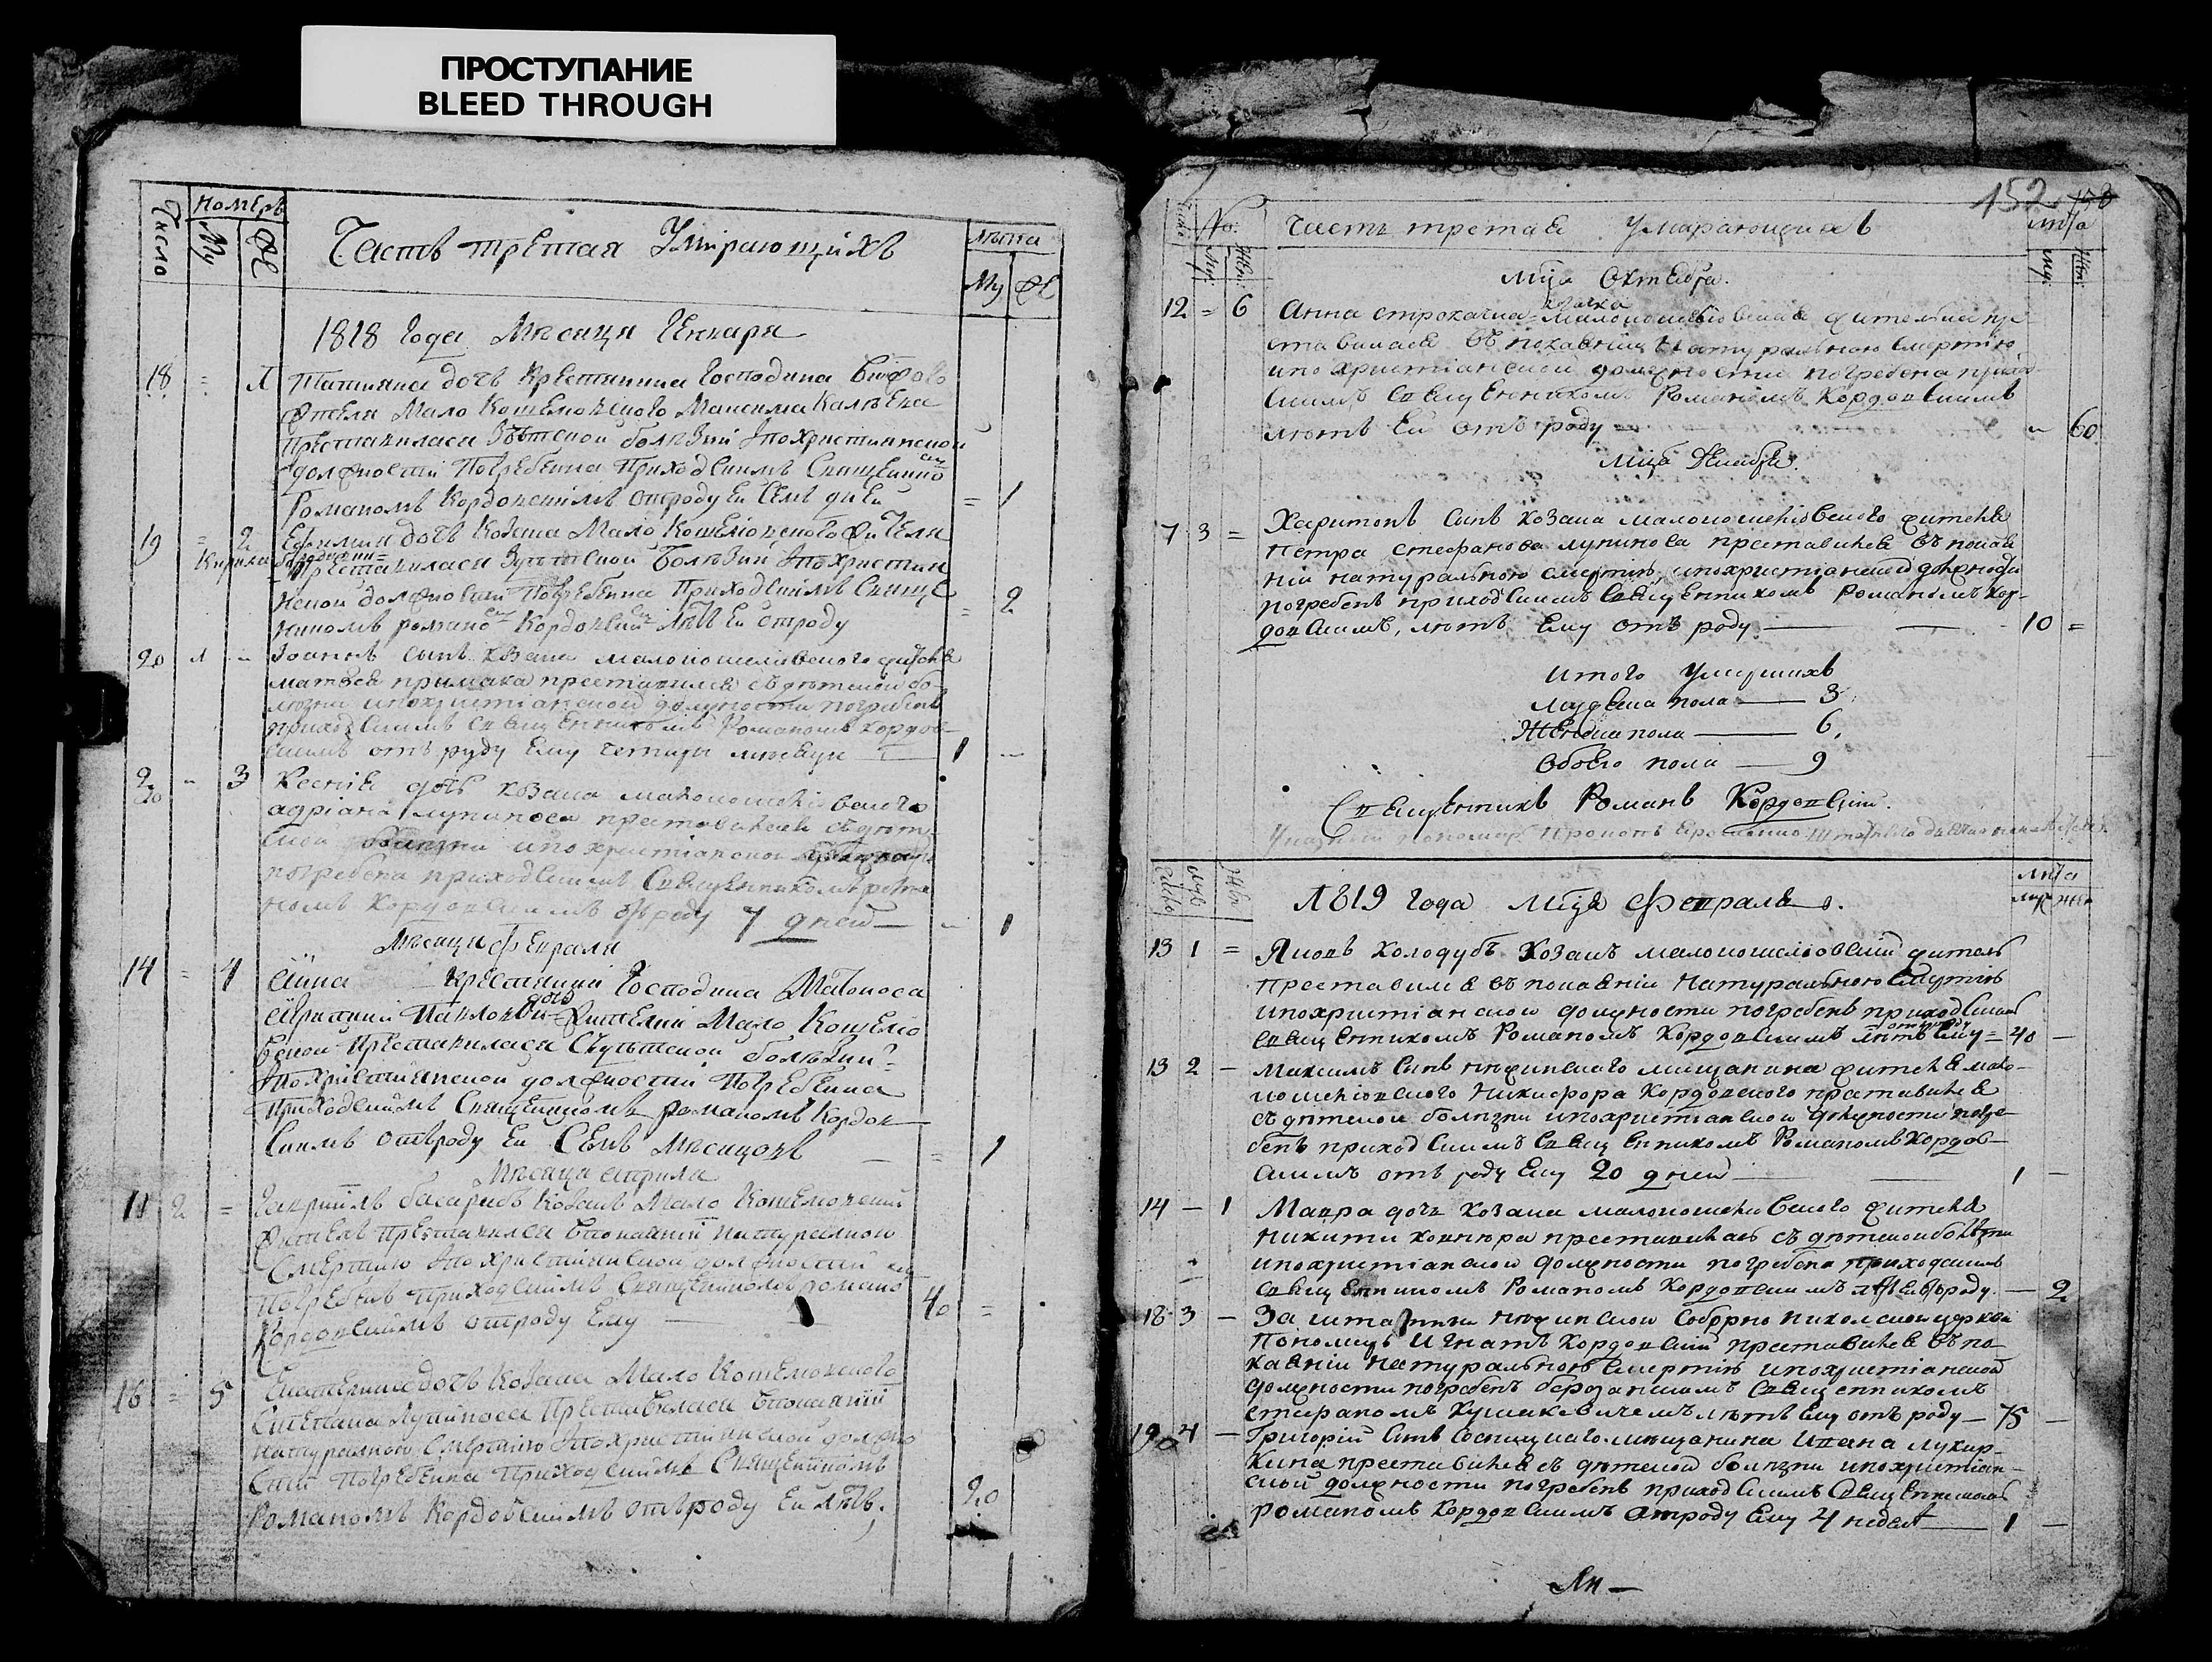 ПРОСТУПАНИЕ
BLEED THROUGH
Число
Номеръ
Му
Же
Часть третая Умѣрающихъ
лѣта
Му Же
1818 Года Мѣсяця Генваря
18 = 1 Татияна дочъ Крестянина Господина
жителя Мало Кошелювского Максима
Преставиласи болѣзни Ипохристиянской
должности Погребенна Приходскимъ Священно
Романомъ Кордовскимъ отроду Ей Семъ дней = 1
19 = 2 Ефимия дочъ Козака Мало Кошелювского жителя
Кирила
Преставиласи болѣзни Ипохристия
нской должности Погребенна Приходскимъ Свяще
никомъ романо Кордовски лѣтъ Ей отроду = 2
20 1 Иоаннъ сынъ козака малокошелювского жителя
матвея примака преставился съ дѣтской бо-
лѣзни ипохристіанской должности погребенъ
приходскимъ священникомъ Романомъ Кордов-
скимъ отъ роду ему четыри мѣсяци 1 -
20 - 3 Ксенія дочь козака малокошелювского
адріана лупиноса преставилася съ дѣт-
ской болѣзни ипохристіанской
погребена приходскимъ Священникомъ рома
номъ Кордовскимъ отъ роду 7 дней - 1
Мѣсяця Февраля
14 = 4 Анна Крестянини Господина
дочъ жителки Мало Кошелю
вской Преставиласи Сдѣтской болѣзни
Ипохристиянской должности Погребенна
Приходскимъ Священникомъ романомъ Кордов
скимъ отъроду Ей Семъ Мѣсяцовъ = 1
Мѣсяца априля
11 2 = Гаврiилъ Козакъ Мало Кошелювский
житель Преставился Впокаянiи натуралною
Смертию Ипохристиянской должности
погребенъ приходскимъ Священникомъ романо
Кордовскимъ отроду Ему 40 =
16 = 5 Екатерина дочъ Козака Мало Кошелювского
Степана Лупиноса Преставиласи Впокаянiи
натуралною Смертию Ипохристиянской должно
сти Погребенна Приходскимъ Священникомъ
Романомъ Кордовскимъ отъроду Ей лѣтъ. 20
152
число
No.
Му: Же:
Часть третая Умирающихъ
лѣта
му: же:
Мца Октября.
12 = 6 Анна
козачка
малокошелювская жителька пре
ставилася въ покаяніи Натуральною смертію
ипохристіанской должности погребена приход
скимъ Священникомъ Романомъ Кордовскимъ
лѣтъ Ей отъ роду - 60
Мца Декабря.
7 3 = Харитонъ сынъ козака малокошелювского жителя
петра стефанова лупиноса преставился въ покая
ніи натуральною смертію, ипохристіанской должности
погребенъ приходскимъ Священникомъ Романомъ Кор-
довскимъ, лѣтъ Ему отъ роду 10 =
Итого Умершихъ
Мужеска пола 3
Женска пола 6.
Обоего пола 9
Священникъ Романъ Кордовскій.
число му же
лѣта
муж жен
1819 года Мца Февраля
13 1 = Яковъ Холодубъ Козакъ малокошелювскій житель
Преставился въ покаяніи Натуральною смертію
ипохристіанской должности погребенъ приходскимъ
Священникомъ Романомъ Кордовскимъ лѣтъ отъ роду Ему = 40 -
13 2 - Максимъ Сынъ нѣжинского мищанина жителя мало-
кошелювского Никифора Кордовского преставился
съ дѣтской болѣзни ипохристіанской должности погре
бенъ приходскимъ Священникомъ Романомъ Кордов-
скимъ отъ роду Ему 20 дней 1 -
14 - 1 Мавра дочь Козака малокошелювского жителя
Никити преставилась съ дѣтской болѣзни
ипохристіанской должности погребена приходскимъ
Священникомъ Романомъ Кордовскимъ лѣтъ Ей отъ роду. - 2
18 3 - Заштатний нѣжинской Соборно Николской церкви
Пономаръ Игнатъ Кордовскій преставился въ по-
каяніи Натуральною смертію ипохристіанской
должности погребенъ Священникомъ
стефаномъ лѣтъ Ему отъ роду - 75 -
19 4 - Григорій Сынъ сосницкаго мѣщанина Ивана
преставился съ дѣтской болѣзни ипохристіан-
ской должности погребенъ приходскимъ Священникомъ
романомъ Кордовскимъ отроду Ему 4 недел 1 -